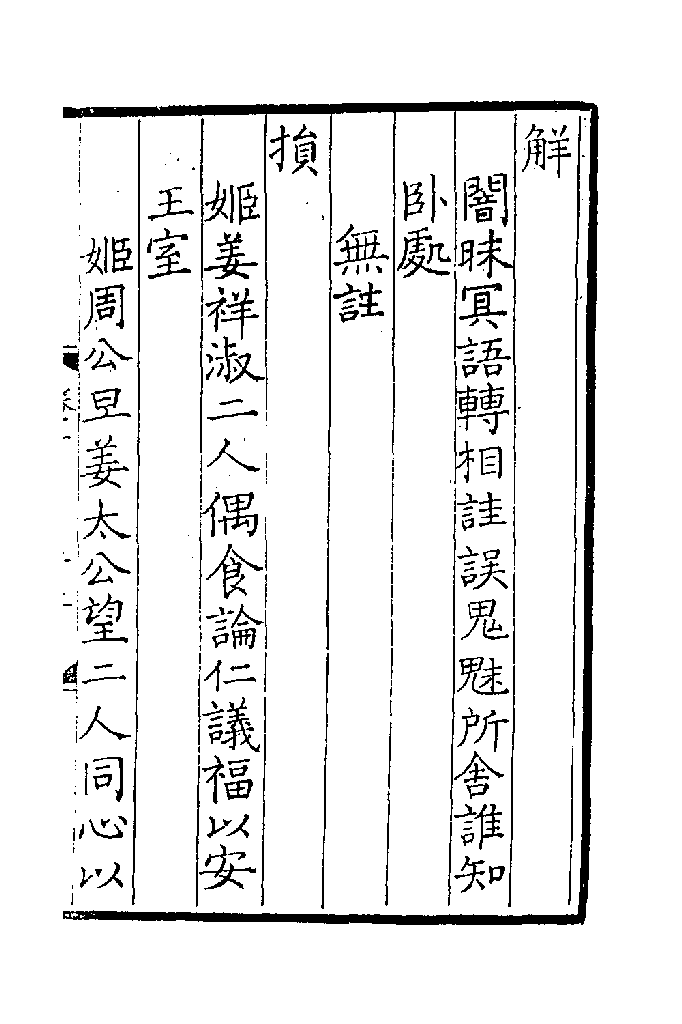 解
闇昧冥語轉相註誤鬼魅所舍誰知
卧處
無註
損
姬姜祥淑二人偶食論仁議福以安
王室
姬周公旦姜太公望二人同心以